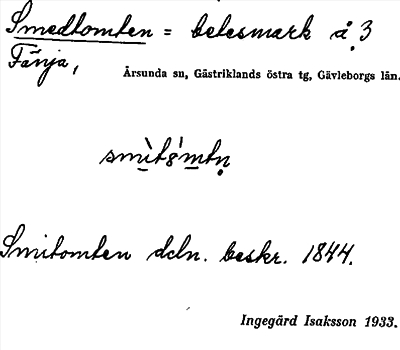 Smedtomten = betesmark å 3
Fänja,
Årsunda sn, Gästriklands östra tg, Gävleborgs län.
Smitomten dcln. beskr. 1844.
Ingegärd Isaksson 1933.